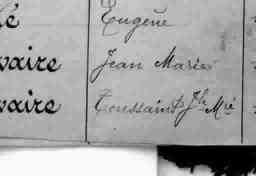 lé Eugène
vaire Jean Marie
vaire Toussaint Jh Mie